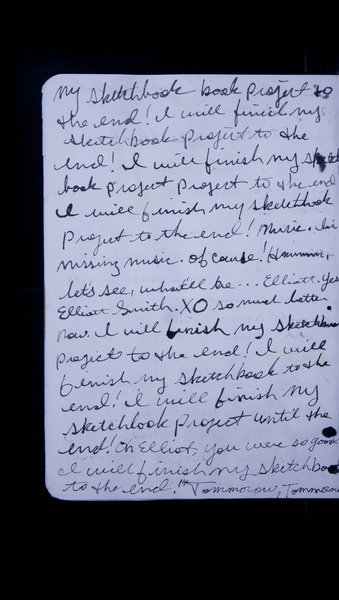 my sketchbook book project to
the end! I will finish my
sketchbook project to the
end! I will finish my sket
book project project to the end
I will finish my sketchbook
Project to the end! Music, I'm
missing music. of cause! Hmmmm,
let's see, what'll be... Elliott. Yes
Elliott Smith. XO so much better
now. I will finish my sketchbook
project to the end! I will
finish my sketchbook to the
end! I will finish my
sketchbook project until the
end! Oh Elliott, you were so good
I will finish my sketchboo
to the end. "Tommorow, Tommorow